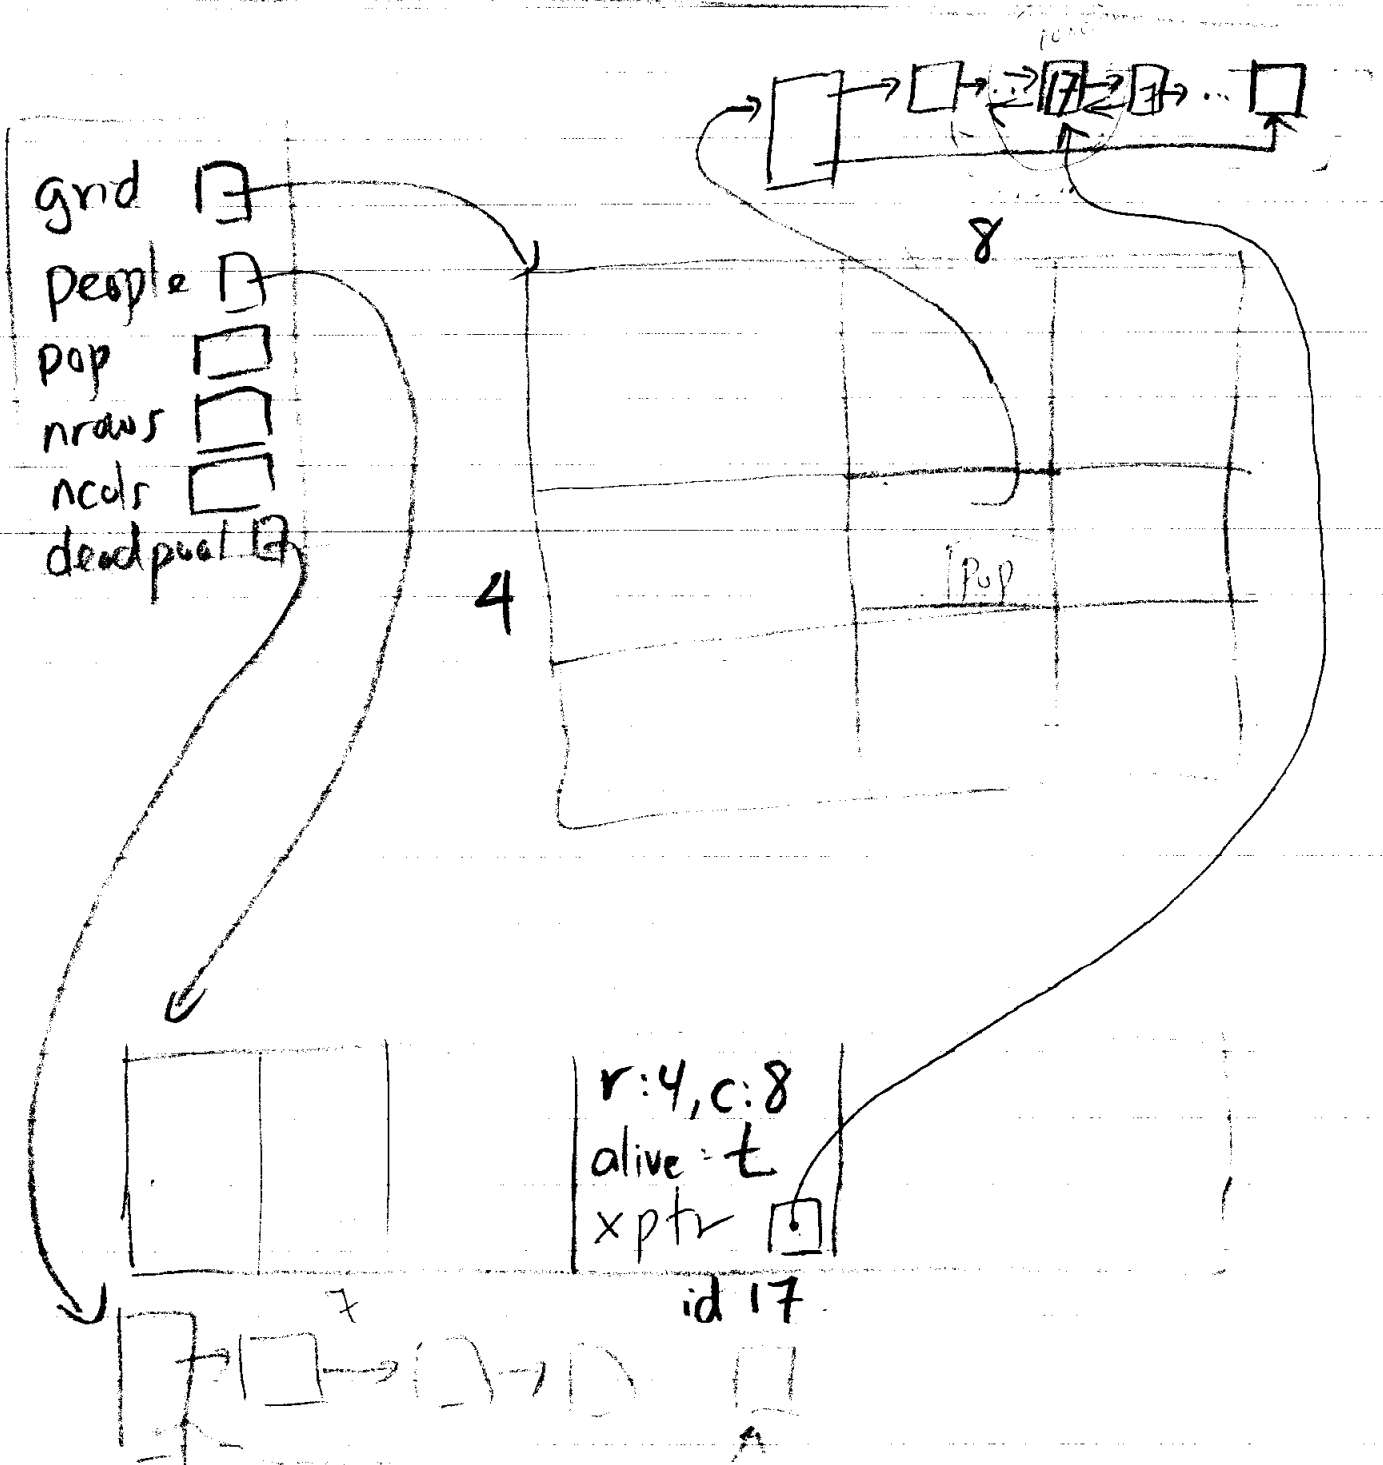 17 7
8
grid
people
pop
nrows
ncols
deadpool
4
pop
r:4, c:8
alive: t
xptr
id 17
7